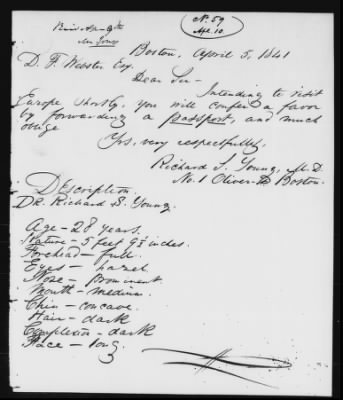 No. 59
Apl. 10
Boston, April 5, 1841
D. F. Webster Esq.
Dear Sir -
Intending to visit
Europe shortly, you will confer a favor
by forwarding a passport, and much
oblige
Yrs, very respectfully,
Richard S. Young, M.D.
No. 1 Oliver St Boston.
Description.
Dr. Richard S. Young.
Age - 28 years.
Stature - 5 feet 9½ inches.
Forehead - full.
Eyes - hazel.
Nose - prominent.
Mouth - medium.
Chin - concave.
Hair - dark
Complexion - dark
Face - long